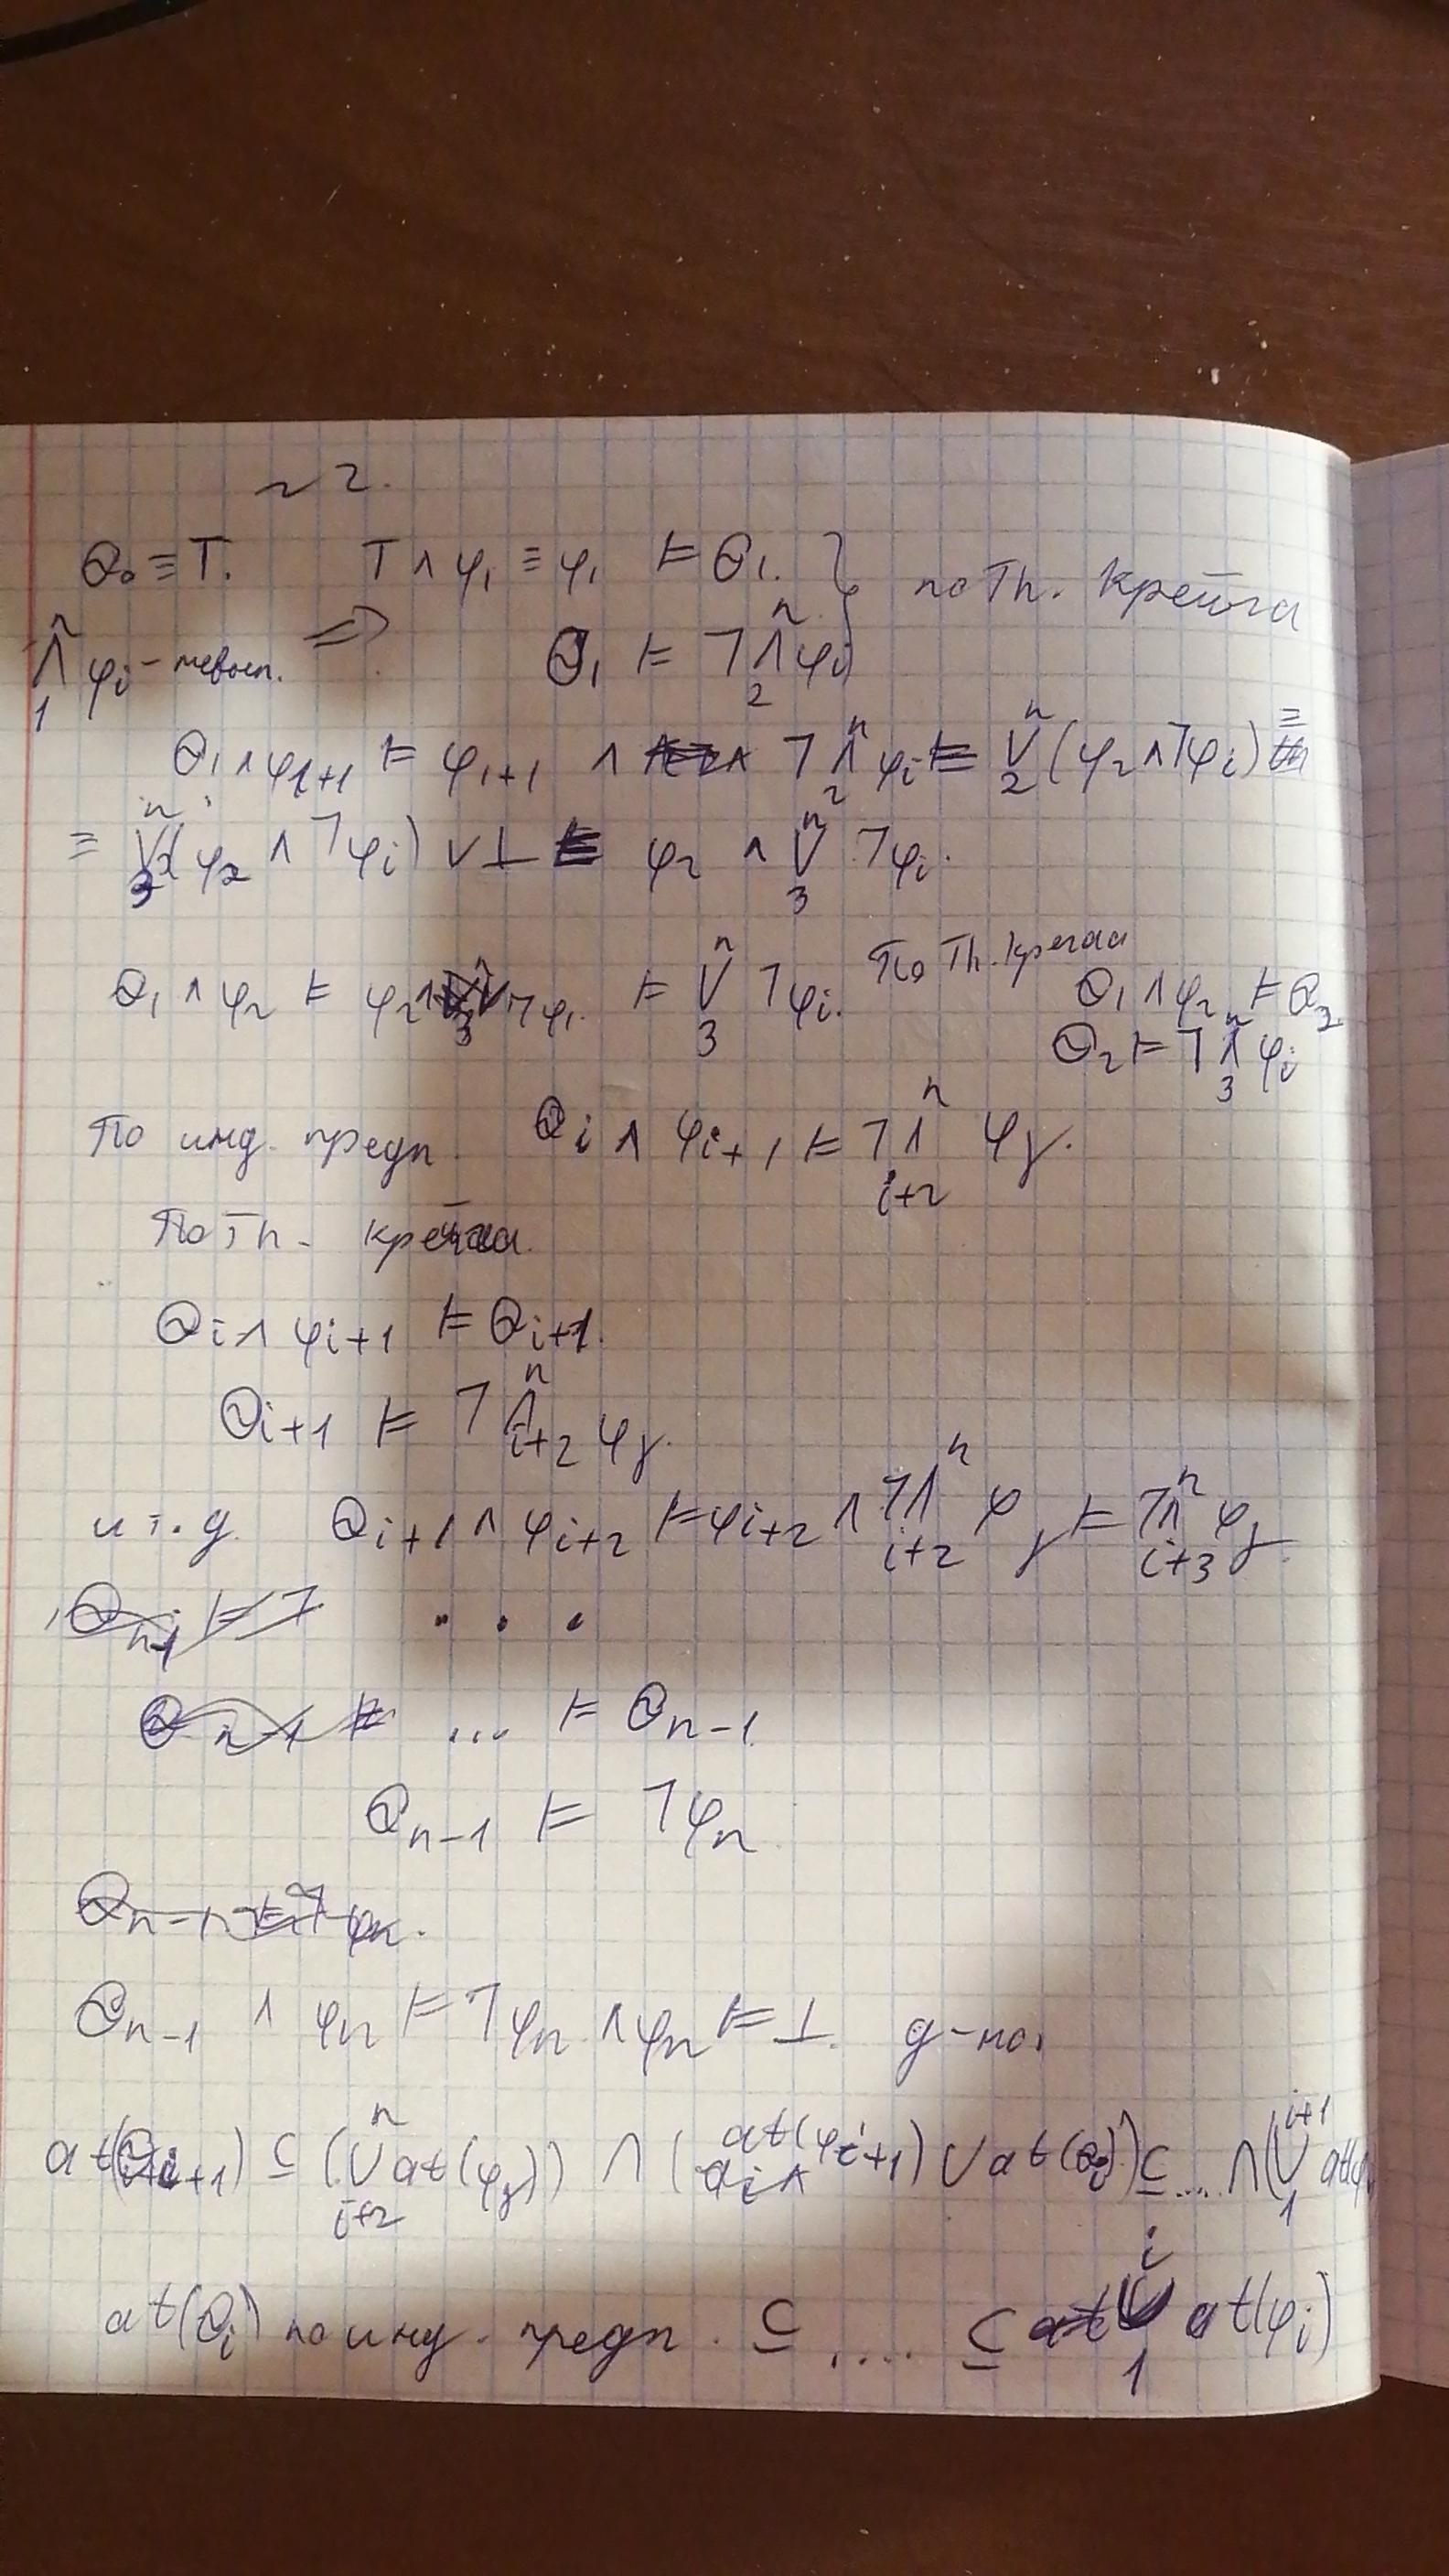 ~ 2.
Θ₀ ≡ T. T ∧ φ₁ ≡ φ₁ ⊨ Θ₁. } по Th. Крейга
⋀₁ⁿ φᵢ - невып. ⇒ Θ₁ ⊨ ¬⋀₂ⁿ φᵢ
Θ₁ ∧ φ₁₊₁ ⊨ φ₁₊₁ ∧ ¬⋀₂ⁿ φᵢ ⊨ ⋁₂ⁿ(φ₂ ∧ ¬φᵢ) ≡
≡ ⋁₃ⁿ(φ₂ ∧ ¬φᵢ) ∨ ⊥ ⊨ φ₂ ∧ ⋁₃ⁿ ¬φᵢ.
Θ₁ ∧ φ₂ ⊨ φ₂ ∧ ⋁₃ⁿ ¬φᵢ ⊨ ⋁₃ⁿ ¬φᵢ. По Th. Крейга Θ₁ ∧ φ₂ ⊨ Θ₂
Θ₂ ⊨ ¬⋀₃ⁿ φᵢ
По инд. предп. Θᵢ ∧ φᵢ₊₁ ⊨ ¬⋀ᵢ₊₂ⁿ φⱼ.
По Th. Крейга.
Θᵢ ∧ φᵢ₊₁ ⊨ Θᵢ₊₁.
Θᵢ₊₁ ⊨ ¬⋀ᵢ₊₂ⁿ φⱼ.
и т.д. Θᵢ₊₁ ∧ φᵢ₊₂ ⊨ φᵢ₊₂ ∧ ¬⋀ᵢ₊₂ⁿ φⱼ ⊨ ¬⋀ᵢ₊₃ⁿ φⱼ.
. . .
... ⊨ Θₙ₋₁
Θₙ₋₁ ⊨ ¬φₙ
Θₙ₋₁ ∧ φₙ ⊨ ¬φₙ ∧ φₙ ⊨ ⊥. д-но.
at(Θᵢ₊₁) ⊆ (⋃ᵢ₊₂ⁿ at(φⱼ)) ∩ (at(φᵢ₊₁) ∪ at(Θᵢ)) ⊆ ... ∩ (⋃₁ⁱ⁺¹ at(φ
at(Θᵢ) по инд. предп. ⊆ .... ⊆ ⋃₁ⁱ at(φᵢ)